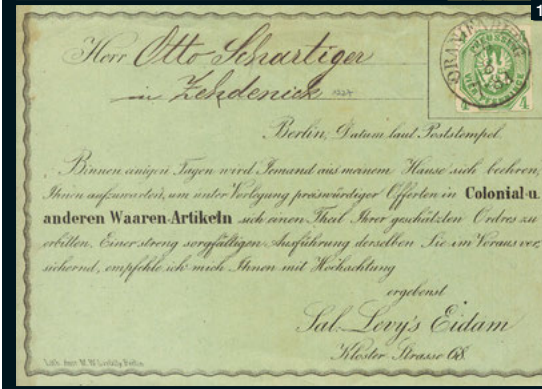 1
Herr Otto Schartiger
in Zehdenick
ORANIENBURG
PREUSSEN
VIER PFENNINGE
4 4
Berlin, Datum laut Poststempel.
Binnen einigen Tagen wird Jemand aus meinem Hause sich beehren,
Ihnen aufzuwarten, um unter Vorlegung preiswürdiger Offerten in Colonial- u.
anderen Waaren-Artikeln sich einen Theil Ihrer geschätzten Ordres zu
erbitten. Einer streng sorgfältigen Ausführung derselben Sie im Voraus ver,
sichernd, empfehle ich mich Ihnen mit Hochachtung
ergebenst
Sal. Levy's Eidam
Kloster Strasse 68.
Berlin